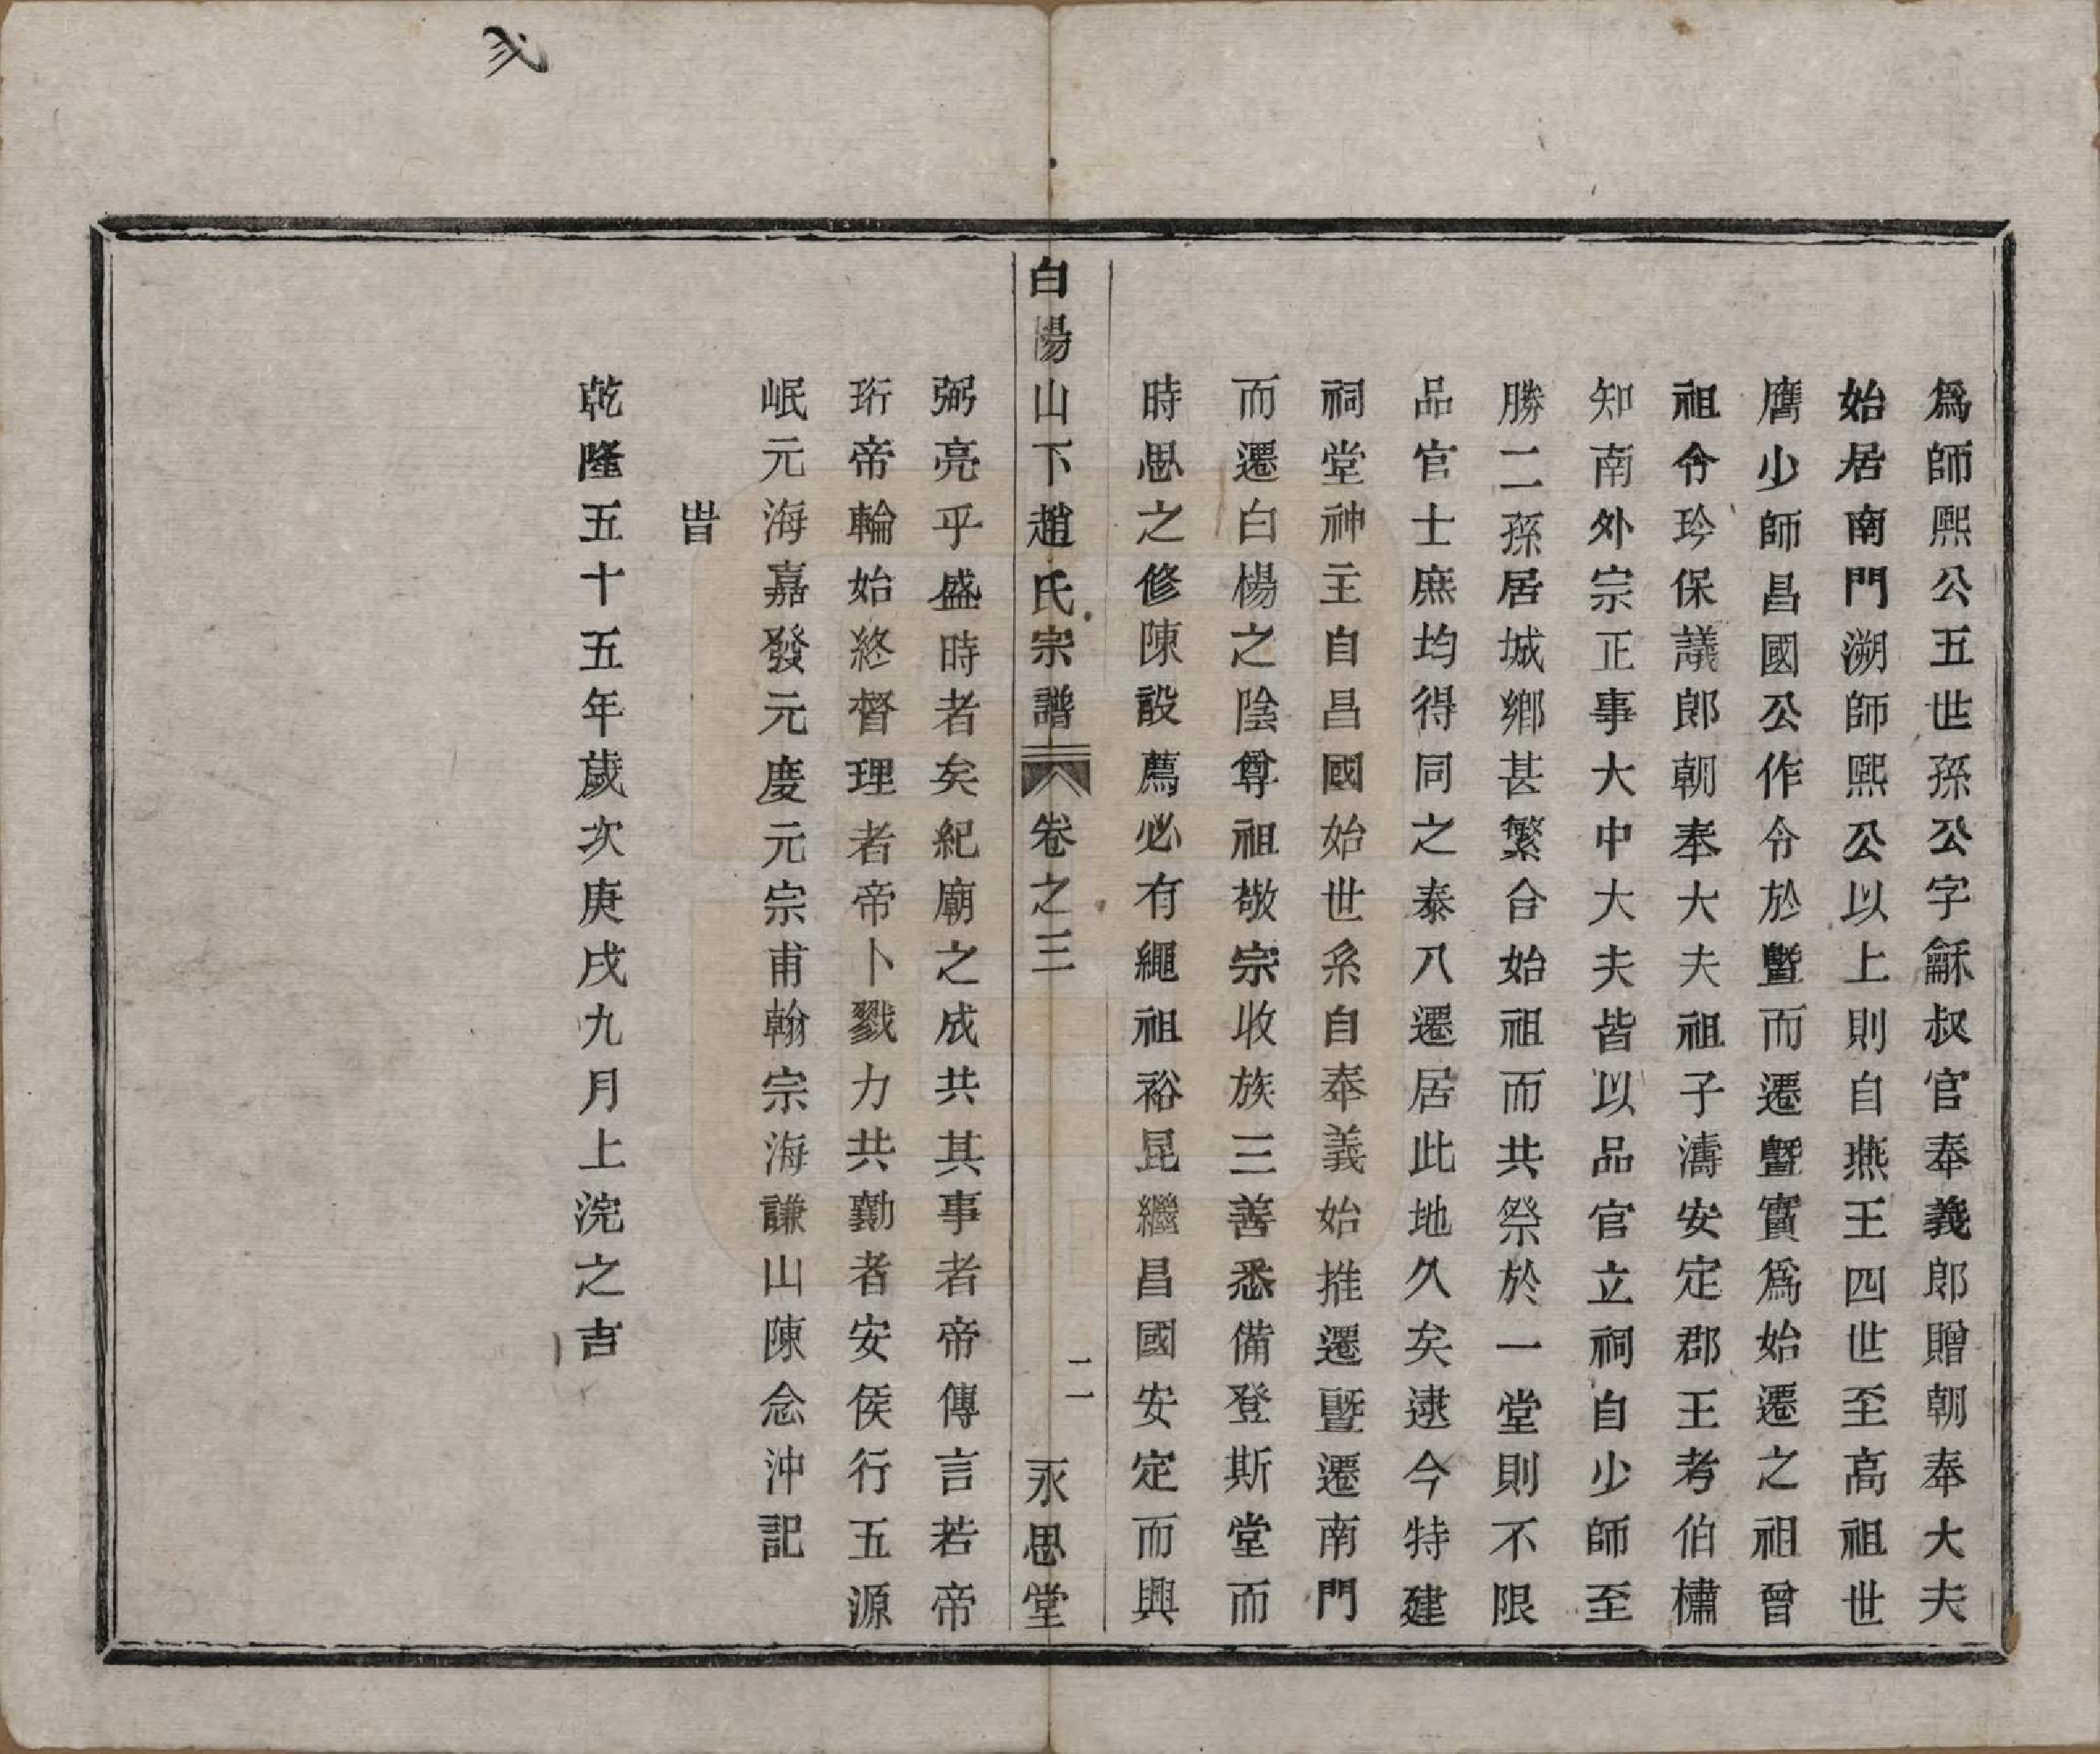 爲師熙公五世孫公字龢叔官奉義郎贈朝奉大夫
始居南門溯師熙公以上則自燕王四世至高祖世
膺少師昌國公作令於曁而遷曁實爲始遷之祖曾
祖令玲保議郎朝奉大夫祖子濤安定郡王考伯櫹
知南外宗正事大中大夫皆以品官立祠自少師至
勝二孫居城鄉甚繁合始祖而共祭於一堂則不限
品官士庶均得同之泰八遷居此地久矣逮今特建
祠堂神主自昌國始世系自奉義始推遷曁遷南門
而遷白楊之陰尊祖敬宗收族三善悉備登斯堂而
時思之修陳設薦必有繩祖裕昆繼昌國安定而興
白陽山下趙氏宗譜 卷之三 二 永思堂
弼亮乎盛時者矣紀廟之成共其事者帝傳言若帝
珩帝輪始終督理者帝卜戮力共勷者安侯行五源
岷元海嘉發元慶元宗甫翰宗海謙山陳念沖記
旹
乾隆五十五年歲次庚戌九月上浣之吉